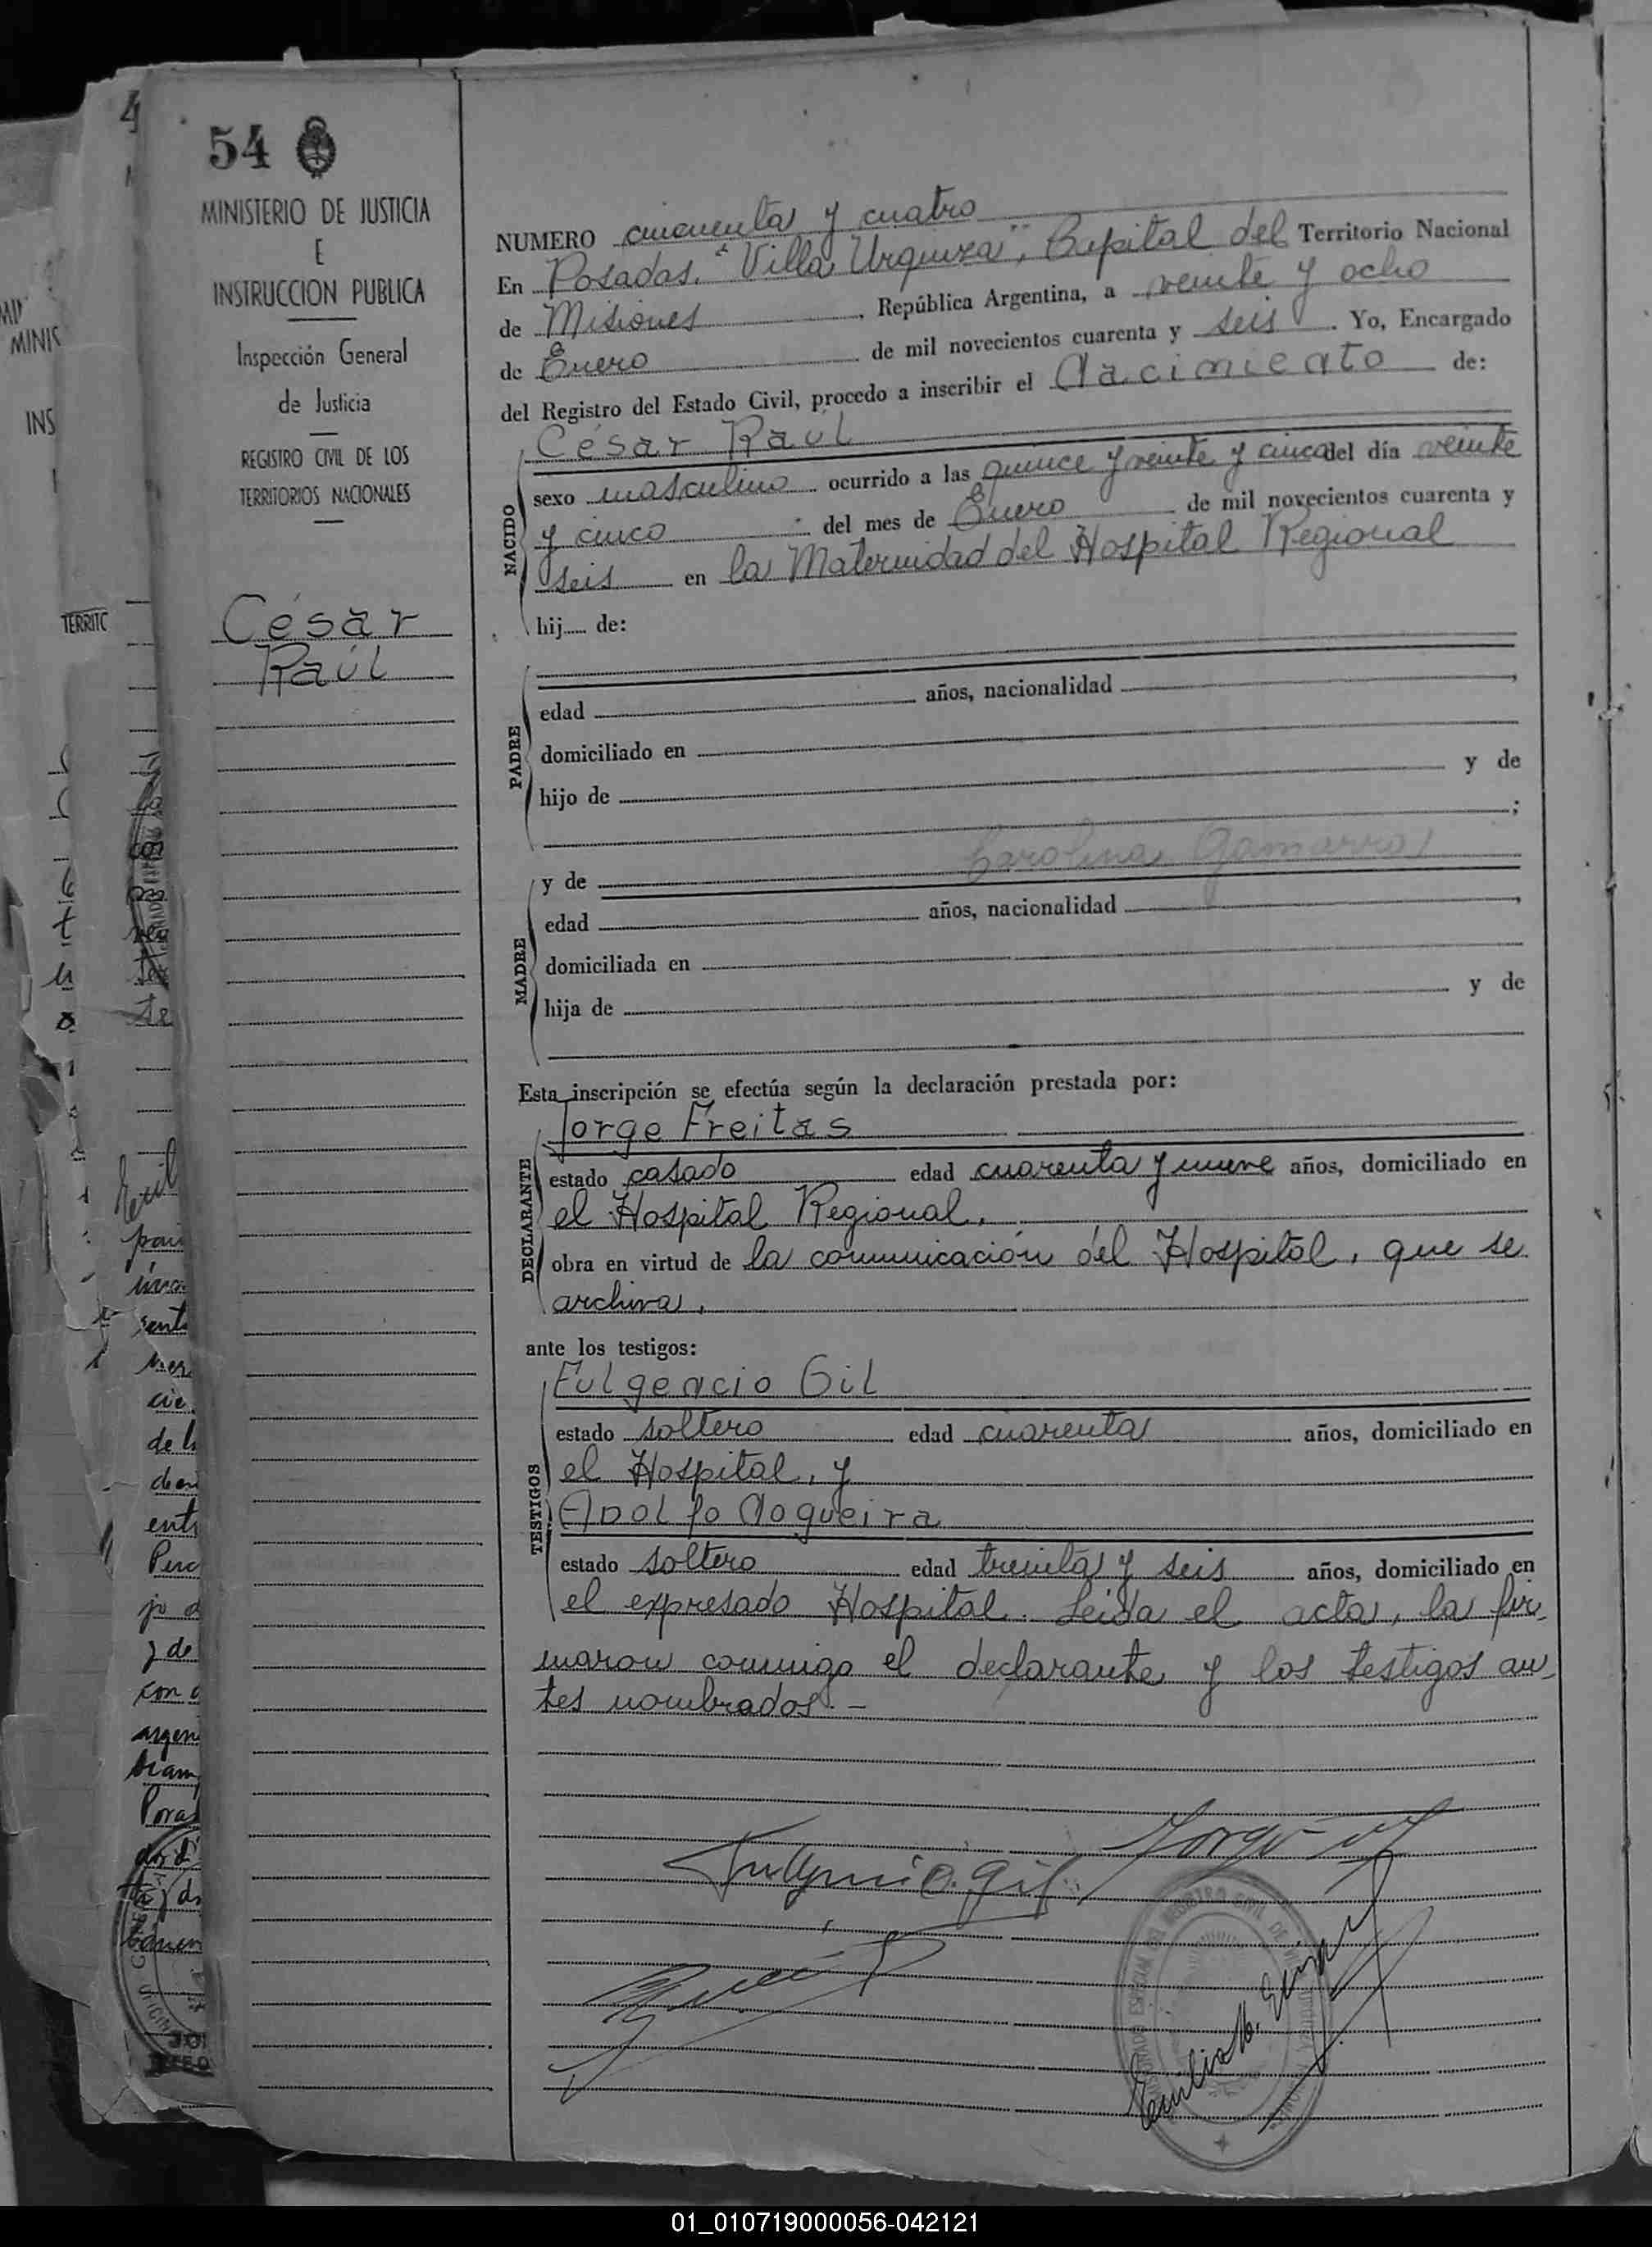 54
MINISTERIO DE JUSTICIA
E
INSTRUCCION PUBLICA
Inspección General
de Justicia
REGISTRO CIVIL DE LOS
TERRITORIOS NACIONALES
César
Raúl
NUMERO cincuenta y cuatro
En Posadas. "Villa Urquiza", Capital del Territorio Nacional
de Misiones, República Argentina, a veinte y ocho
de Enero de mil novecientos cuarenta y seis. Yo, Encargado
del Registro del Estado Civil, procedo a inscribir el Nacimiento de:
NACIDO
César Raúl
sexo masculino ocurrido a las quince y veinte y cinco del día veinte
y cinco del mes de Enero de mil novecientos cuarenta y
seis en la Maternidad del Hospital Regional
hij de:
PADRE
edad años, nacionalidad ,
domiciliado en
hijo de y de
;
MADRE
y de Carolina Gamarra
edad años, nacionalidad ,
domiciliada en
hija de y de
Esta inscripción se efectúa según la declaración prestada por:
DECLARANTE
Jorge Freitas
estado casado edad cuarenta y nueve años, domiciliado en
el Hospital Regional,
obra en virtud de la comunicación del Hospital, que se
archiva,
ante los testigos:
TESTIGOS
Fulgencio Gil
estado soltero edad cuarenta años, domiciliado en
el Hospital, y
Adolfo Nogueira
estado soltero edad treinta y seis años, domiciliado en
el expresado Hospital. Leida el acta, la fir-
maron conmigo el declarante y los testigos an-
tes nombrados.-
01_010719000056-042121